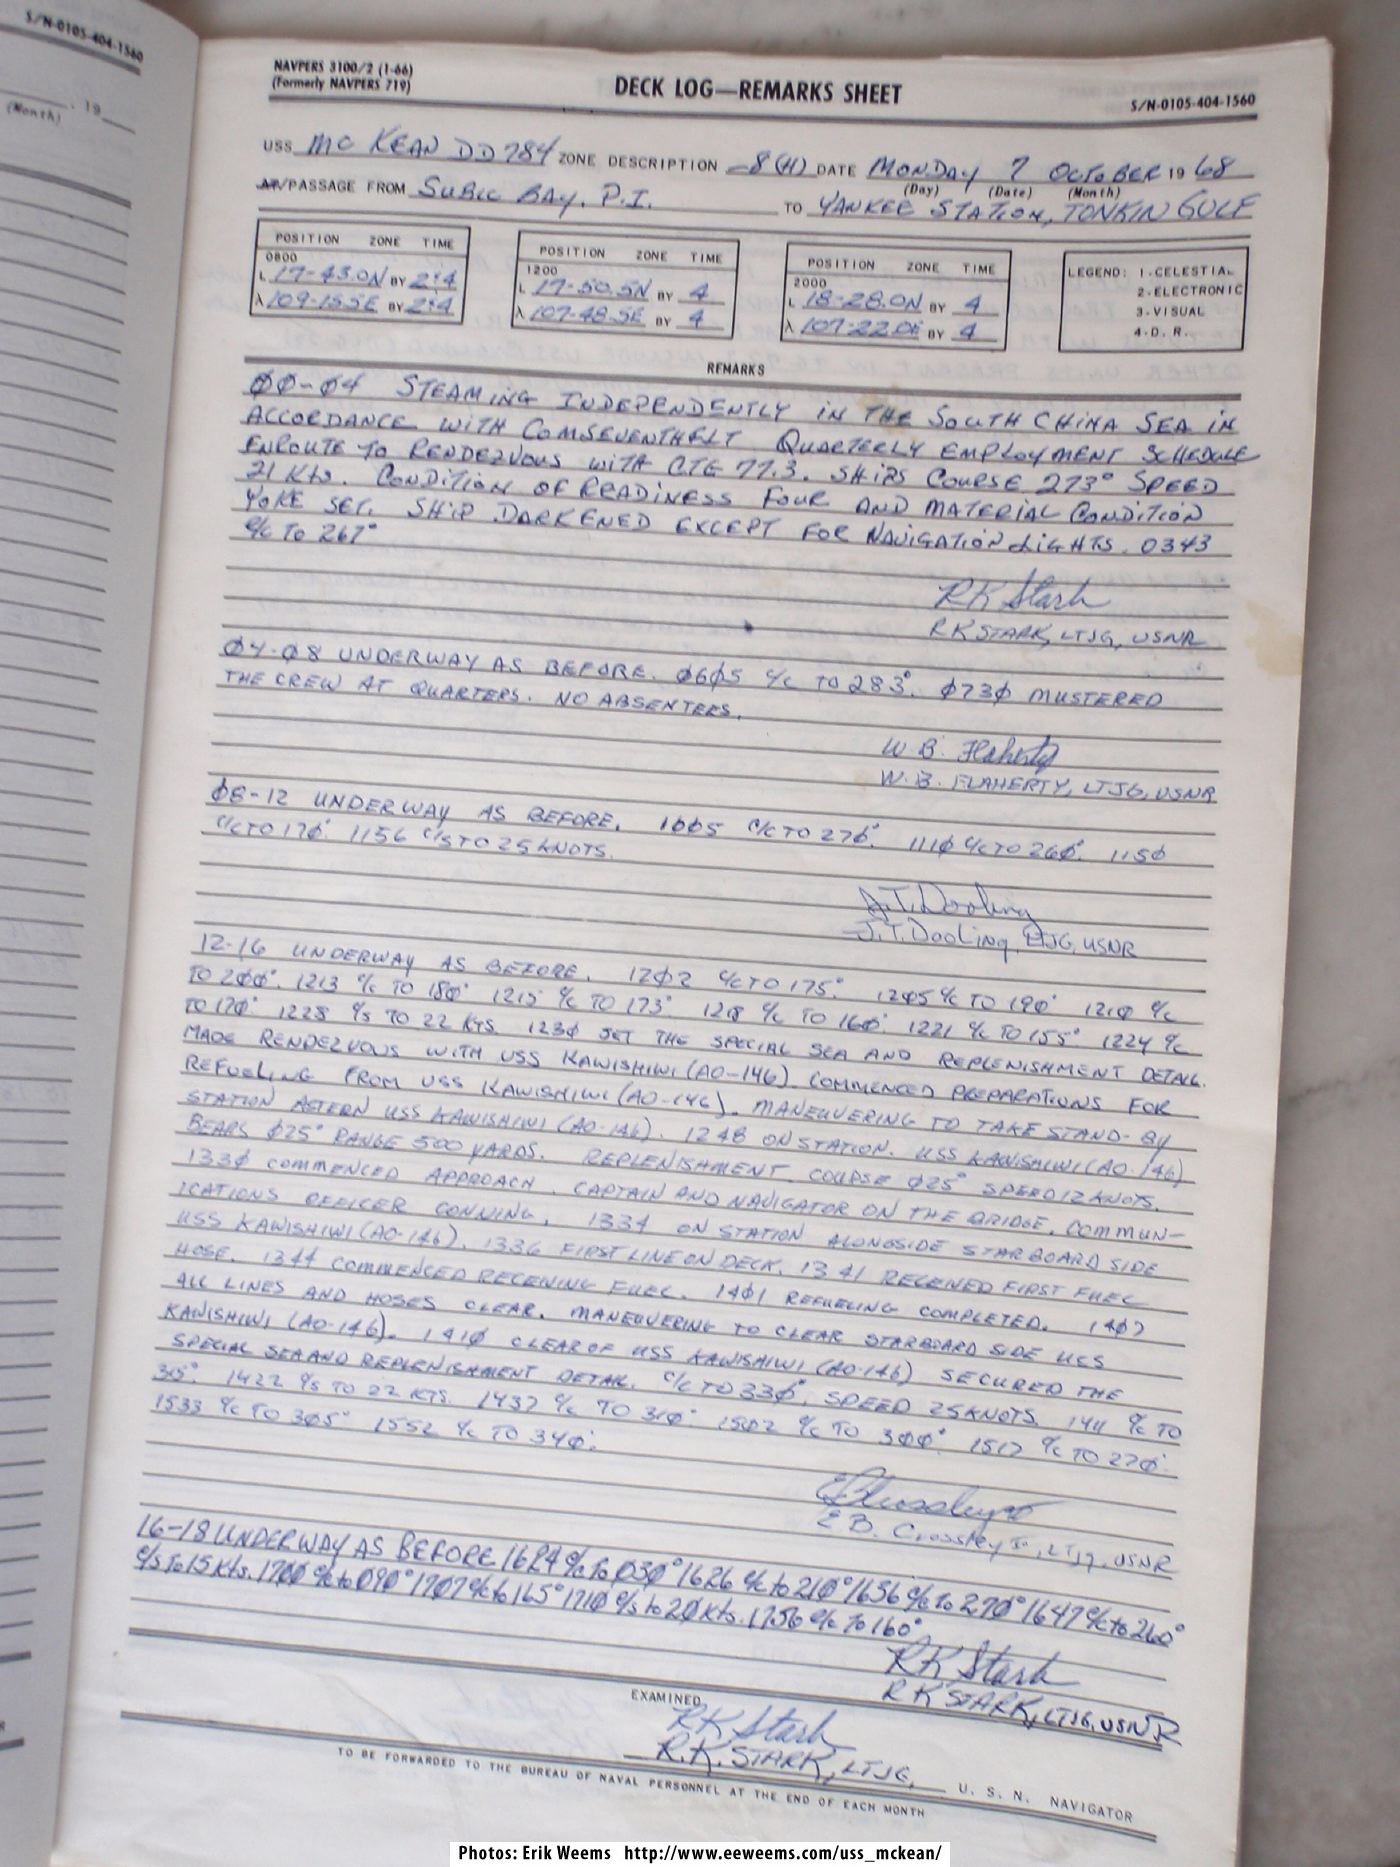 S/N-0105-404-1560
(Month)
, 19
NAVPERS 3100/2 (1-66)
(Formerly NAVPERS 719)
DECK LOG—REMARKS SHEET
S/N-0105-404-1560
USS MC KEAN DD784 ZONE DESCRIPTION -8(H) DATE MONDAY 7 OCTOBER 1968
(Day) (Date) (Month)
AT/PASSAGE FROM SUBIC BAY, P.I. TO YANKEE STATION, TONKIN GULF
POSITION ZONE TIME
0800
L 17-43.0N BY 2+4
λ 109-15.5E BY 2+4
POSITION ZONE TIME
1200
L 17-50.5N BY 4
λ 107-48.5E BY 4
POSITION ZONE TIME
2000
L 18-28.0N BY 4
λ 107-22.0E BY 4
LEGEND: 1-CELESTIAL
2-ELECTRONIC
3-VISUAL
4-D. R.
REMARKS
ØØ-Ø4 STEAMING INDEPENDENTLY IN THE SOUTH CHINA SEA IN
ACCORDANCE WITH COMSEVENTHFLT QUARTERLY EMPLOYMENT SCHEDULE
ENROUTE TO RENDEZVOUS WITH CTG 77.3. SHIPS COURSE 273° SPEED
21 KTS. CONDITION OF READINESS FOUR AND MATERIAL CONDITION
YOKE SET. SHIP DARKENED EXCEPT FOR NAVIGATION LIGHTS. 0343
C/C TO 267°
RK Stark
RK STARK, LTJG, USNR
Ø4-Ø8 UNDERWAY AS BEFORE. Ø6Ø5 C/C TO 283°. Ø73Ø MUSTERED
THE CREW AT QUARTERS. NO ABSENTEES.
W B. Flaherty
W. B. FLAHERTY, LTJG, USNR
Ø8-12 UNDERWAY AS BEFORE. 1ØØ5 C/C TO 27Ø°. 111Ø C/C TO 26Ø°. 115Ø
C/C TO 17Ø°. 1156 C/S TO 25 KNOTS.
J.T. Dooling
J.T. Dooling, LTJG, USNR
12-16 UNDERWAY AS BEFORE. 12Ø2 C/C TO 175°. 12Ø5 C/C TO 19Ø° 121Ø C/C
TO 2ØØ°. 1213 C/C TO 18Ø° 1215 C/C TO 173° 1218 C/C TO 16Ø° 1221 C/C TO 155° 1224 C/C
TO 17Ø°. 1228 C/S TO 22 KTS. 123Ø SET THE SPECIAL SEA AND REPLENISHMENT DETAIL.
MADE RENDEZVOUS WITH USS KAWISHIWI (AO-146) COMMENCED PREPARATIONS FOR
REFUELING FROM USS KAWISHIWI (AO-146). MANEUVERING TO TAKE STAND-BY
STATION ASTERN USS KAWISHIWI (AO-146). 1248 ON STATION. USS KAWISHIWI (AO-146)
BEARS Ø25° RANGE 500 YARDS. REPLENISHMENT COURSE Ø25° SPEED 12 KNOTS.
133Ø COMMENCED APPROACH. CAPTAIN AND NAVIGATOR ON THE BRIDGE, COMMUN-
ICATIONS OFFICER CONNING. 1334 ON STATION ALONGSIDE STARBOARD SIDE
USS KAWISHIWI (AO-146). 1336 FIRST LINE ON DECK. 1341 RECEIVED FIRST FUEL
HOSE. 1344 COMMENCED RECEIVING FUEL. 14Ø1 REFUELING COMPLETED. 14Ø7
ALL LINES AND HOSES CLEAR. MANEUVERING TO CLEAR STARBOARD SIDE USS
KAWISHIWI (AO-146). 141Ø CLEAR OF USS KAWISHIWI (AO-146) SECURED THE
SPECIAL SEA AND REPLENISHMENT DETAIL. C/C TO 33Ø°, SPEED 25 KNOTS. 1411 C/C TO
315°. 1422 C/S TO 22 KTS. 1437 C/C TO 31Ø° 15Ø2 C/C TO 3ØØ°. 1517 C/C TO 27Ø°.
1533 C/C TO 3Ø5° 1552 C/C TO 34Ø°.
E.B. Crossley Jr., LTJG, USNR
16-18 UNDERWAY AS BEFORE 1624 C/C TO Ø3Ø° 1626 C/C to 21Ø° 1636 C/C To 27Ø° 1647 C/C to 26Ø°
C/S To 15 Kts. 17ØØ C/C to Ø9Ø° 17Ø7 C/C to 165° 171Ø C/S to 2Ø Kts. 1756 C/C To 16Ø°
RK Stark
RK STARK, LTJG, USNR
EXAMINED
RK Stark
R.K. STARK, LTJG, U. S. N. NAVIGATOR
TO BE FORWARDED TO THE BUREAU OF NAVAL PERSONNEL AT THE END OF EACH MONTH
Photos: Erik Weems http://www.eeweems.com/uss_mckean/